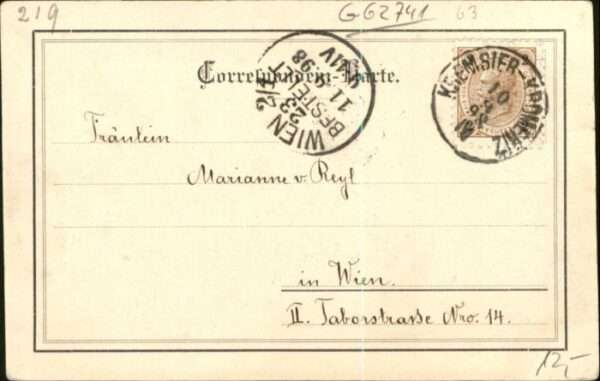 219
G62741
63
Correspondenz-Karte.
WIEN 2/2
23
BESTELLT
11.9.98
KREMSIER-
10
9
98
Fräulein
Marianne v. Reyl
in Wien.
II. Taborstraße Nro. 14.
12,-